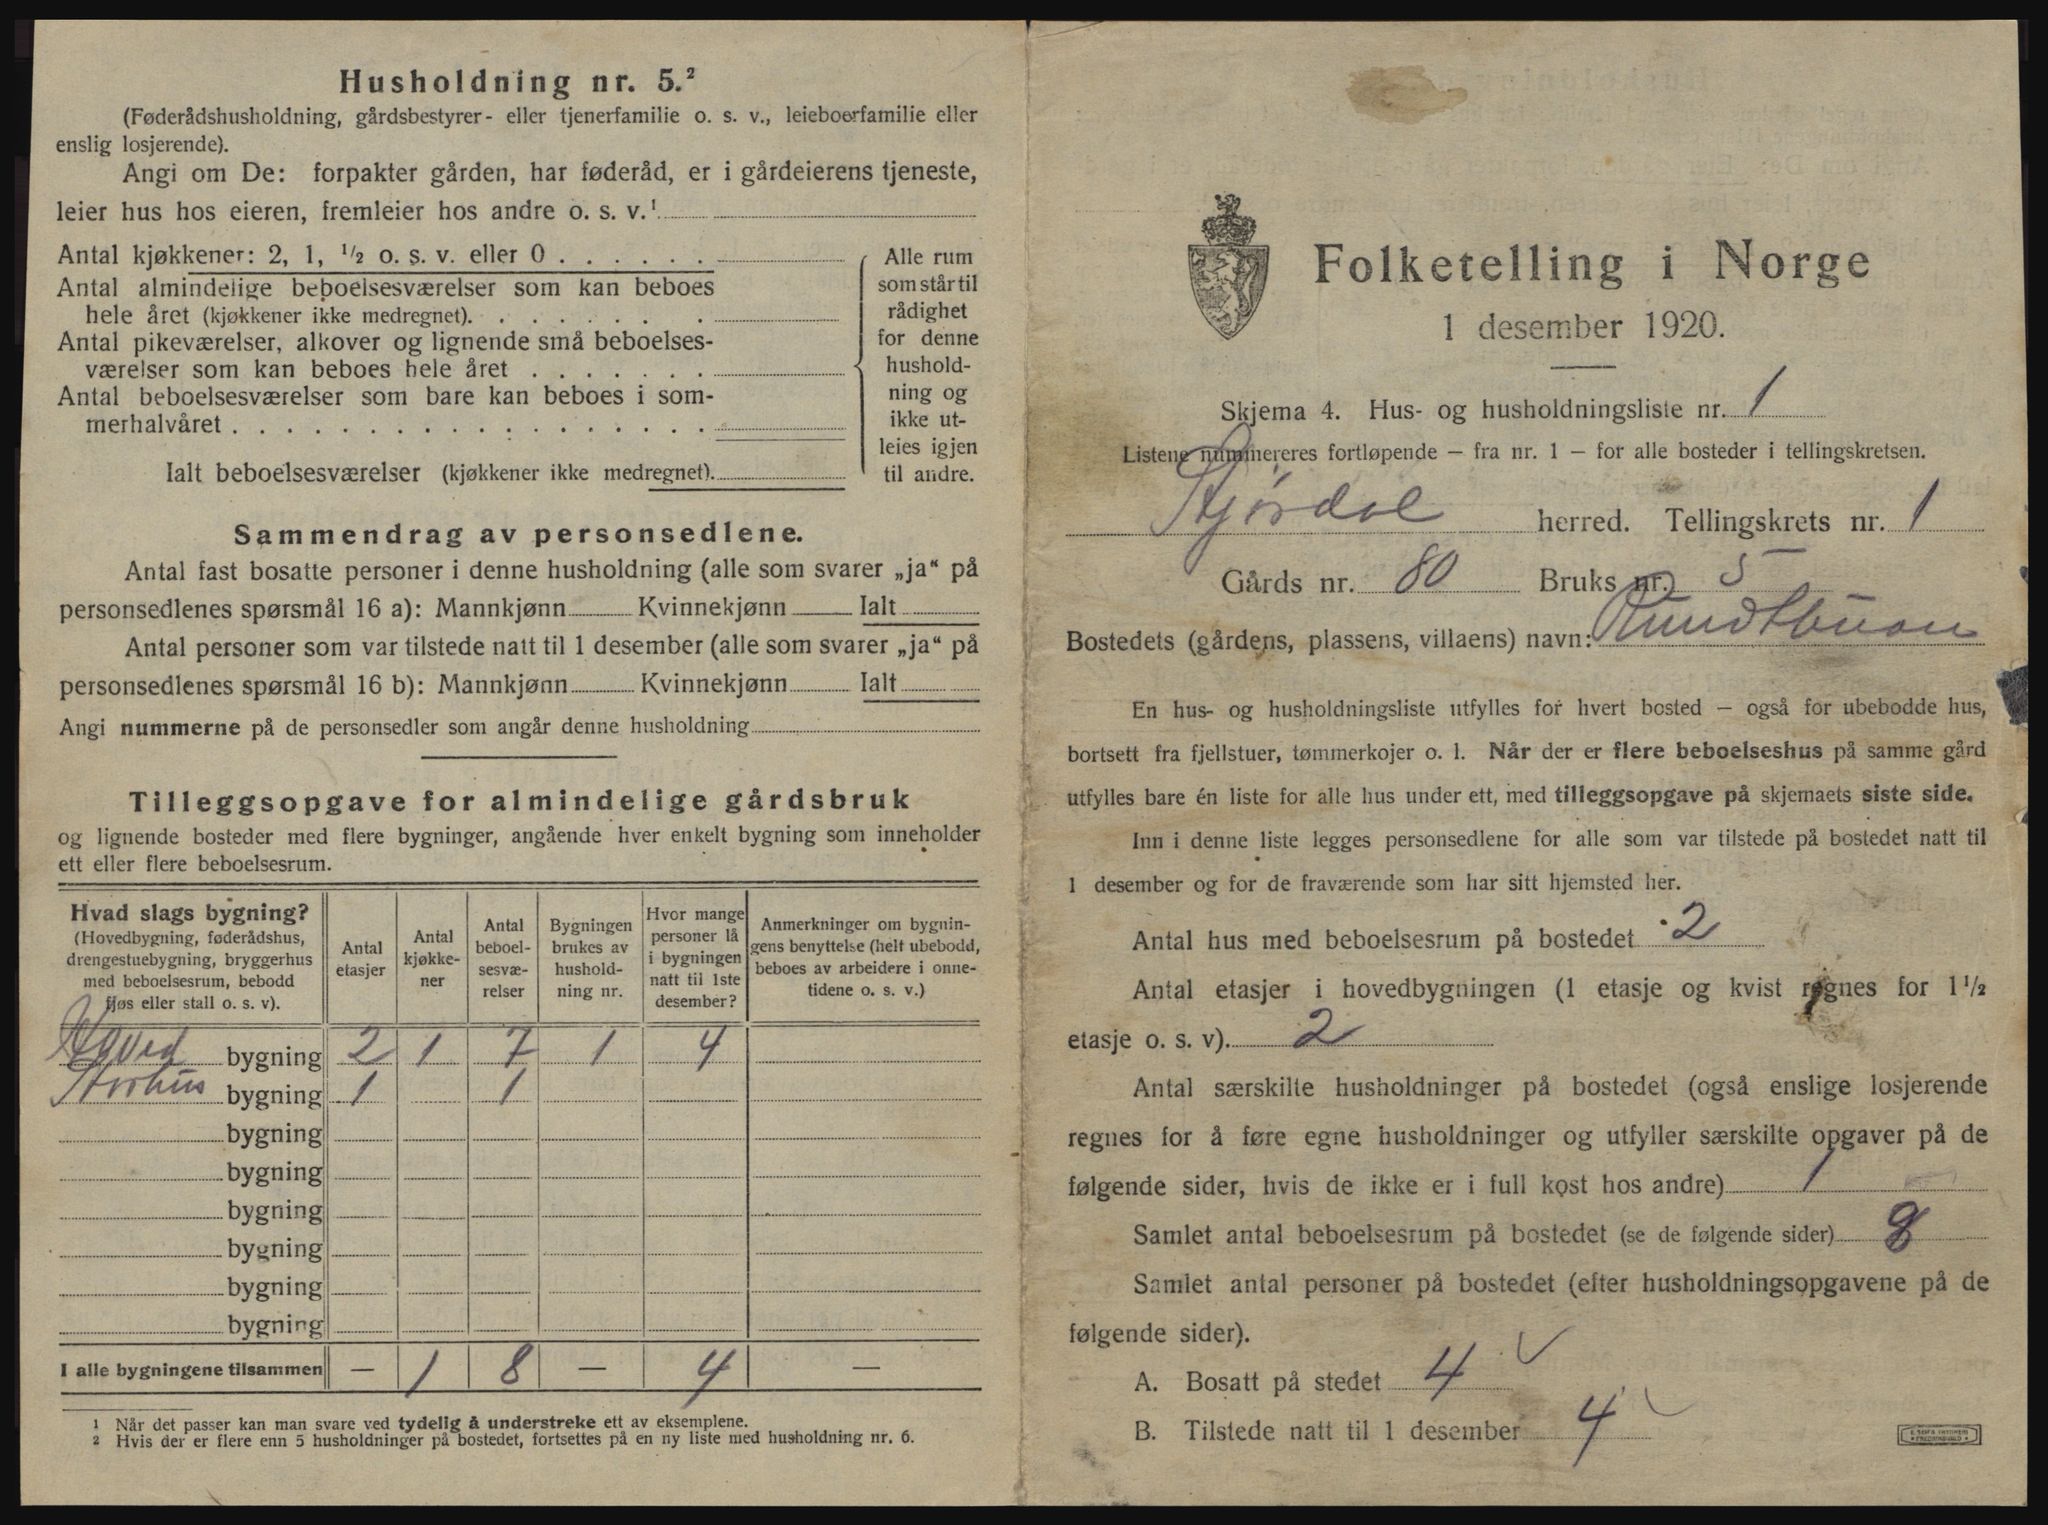 Husholdning nr. 5.²
(Føderådshusholdning, gårdsbestyrer- eller tjenerfamilie o. s. v., leieboerfamilie eller
enslig losjerende).
Angi om De: forpakter gården, har føderåd, er i gårdeierens tjeneste,
leier hus hos eieren, fremleier hos andre o. s. v.¹
Antal kjøkkener: 2, 1, ½ o. s. v. eller 0 . . . . . .
Antal almindelige beboelsesværelser som kan beboes
hele året (kjøkkener ikke medregnet). . . . . . . .
Antal pikeværelser, alkover og lignende små beboelses-
værelser som kan beboes hele året . . . . . . .
Antal beboelsesværelser som bare kan beboes i som-
merhalvåret . . . . . . . . . . . . . . . . . .
Ialt beboelsesværelser (kjøkkener ikke medregnet).
Alle rum
som står til
rådighet
for denne
hushold-
ning og
ikke ut-
leies igjen
til andre.
Sammendrag av personsedlene.
Antal fast bosatte personer i denne husholdning (alle som svarer „ja“ på
personsedlenes spørsmål 16 a): Mannkjønn Kvinnekjønn Ialt
Antal personer som var tilstede natt til 1 desember (alle som svarer „ja“ på
personsedlenes spørsmål 16 b): Mannkjønn Kvinnekjønn Ialt
Angi nummerne på de personsedler som angår denne husholdning
Tilleggsopgave for almindelige gårdsbruk
og lignende bosteder med flere bygninger, angående hver enkelt bygning som inneholder
ett eller flere beboelsesrum.
Hvad slags bygning?
(Hovedbygning, føderådshus,
drengestuebygning, bryggerhus
med beboelsesrum, bebodd
fjøs eller stall o. s. v).
Antal
etasjer
Antal
kjøkke-
ner
Antal
beboel-
sesvæ-
relser
Bygningen
brukes av
hushold-
ning nr.
Hvor mange
personer lå
i bygningen
natt til 1ste
desember?
Anmerkninger om bygnin-
gens benyttelse (helt ubebodd,
beboes av arbeidere i onne-
tidene o. s. v.)
Hoved bygning 2 1 7 1 4
bygning 1 1
bygning
bygning
bygning
bygning
bygning
bygning
I alle bygningene tilsammen — 1 8 — 4 —
¹ Når det passer kan man svare ved tydelig å understreke ett av eksemplene.
² Hvis der er flere enn 5 husholdninger på bostedet, fortsettes på en ny liste med husholdning nr. 6.
Folketelling i Norge
1 desember 1920.
Skjema 4. Hus- og husholdningsliste nr. 1
Listene nummereres fortløpende — fra nr. 1 — for alle bosteder i tellingskretsen.
Stjørdal herred. Tellingskrets nr. 1
Gårds nr. 80 Bruks nr. 5
Bostedets (gårdens, plassens, villaens) navn:
En hus- og husholdningsliste utfylles for hvert bosted — også for ubebodde hus,
bortsett fra fjellstuer, tømmerkojer o. l. Når der er flere beboelseshus på samme gård
utfylles bare én liste for alle hus under ett, med tilleggsopgave på skjemaets siste side.
Inn i denne liste legges personsedlene for alle som var tilstede på bostedet natt til
1 desember og for de fraværende som har sitt hjemsted her.
Antal hus med beboelsesrum på bostedet 2
Antal etasjer i hovedbygningen (1 etasje og kvist regnes for 1½
etasje o. s. v). 2
Antal særskilte husholdninger på bostedet (også enslige losjerende
regnes for å føre egne husholdninger og utfyller særskilte opgaver på de
følgende sider, hvis de ikke er i full kost hos andre) 1
Samlet antal beboelsesrum på bostedet (se de følgende sider) 8
Samlet antal personer på bostedet (efter husholdningsopgavene på de
følgende sider).
A. Bosatt på stedet 4 ✓
B. Tilstede natt til 1 desember 4 ✓